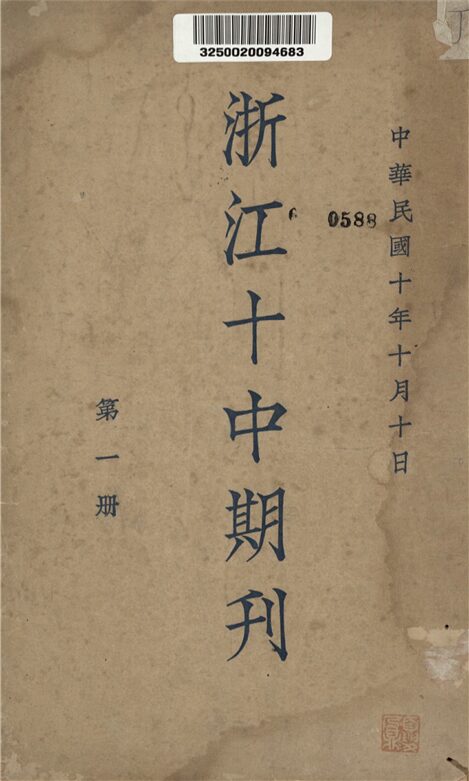 3250020094683
中華民國十年十月十日
0588
6
浙江十中期刊
第一册